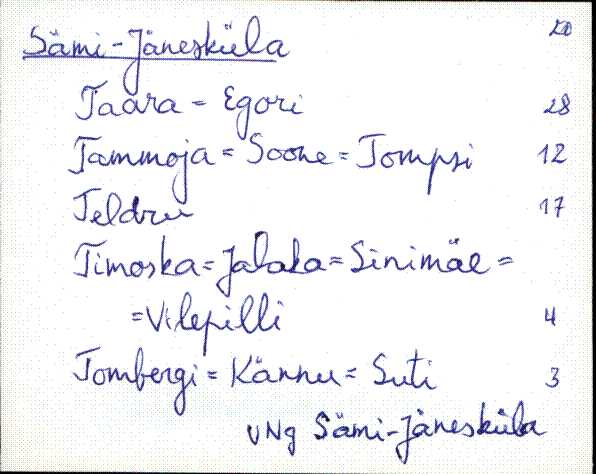 Sämi-Jänesküla
Taara = Egori 28
Tammoja = Soone = Tompsi 12
Teldru 17
Timoska = Jalaka = Sinimäe =
= Vilepilli 4
Tombergi = Kännu = Suti 3
VNg Sämi-Jänesküla